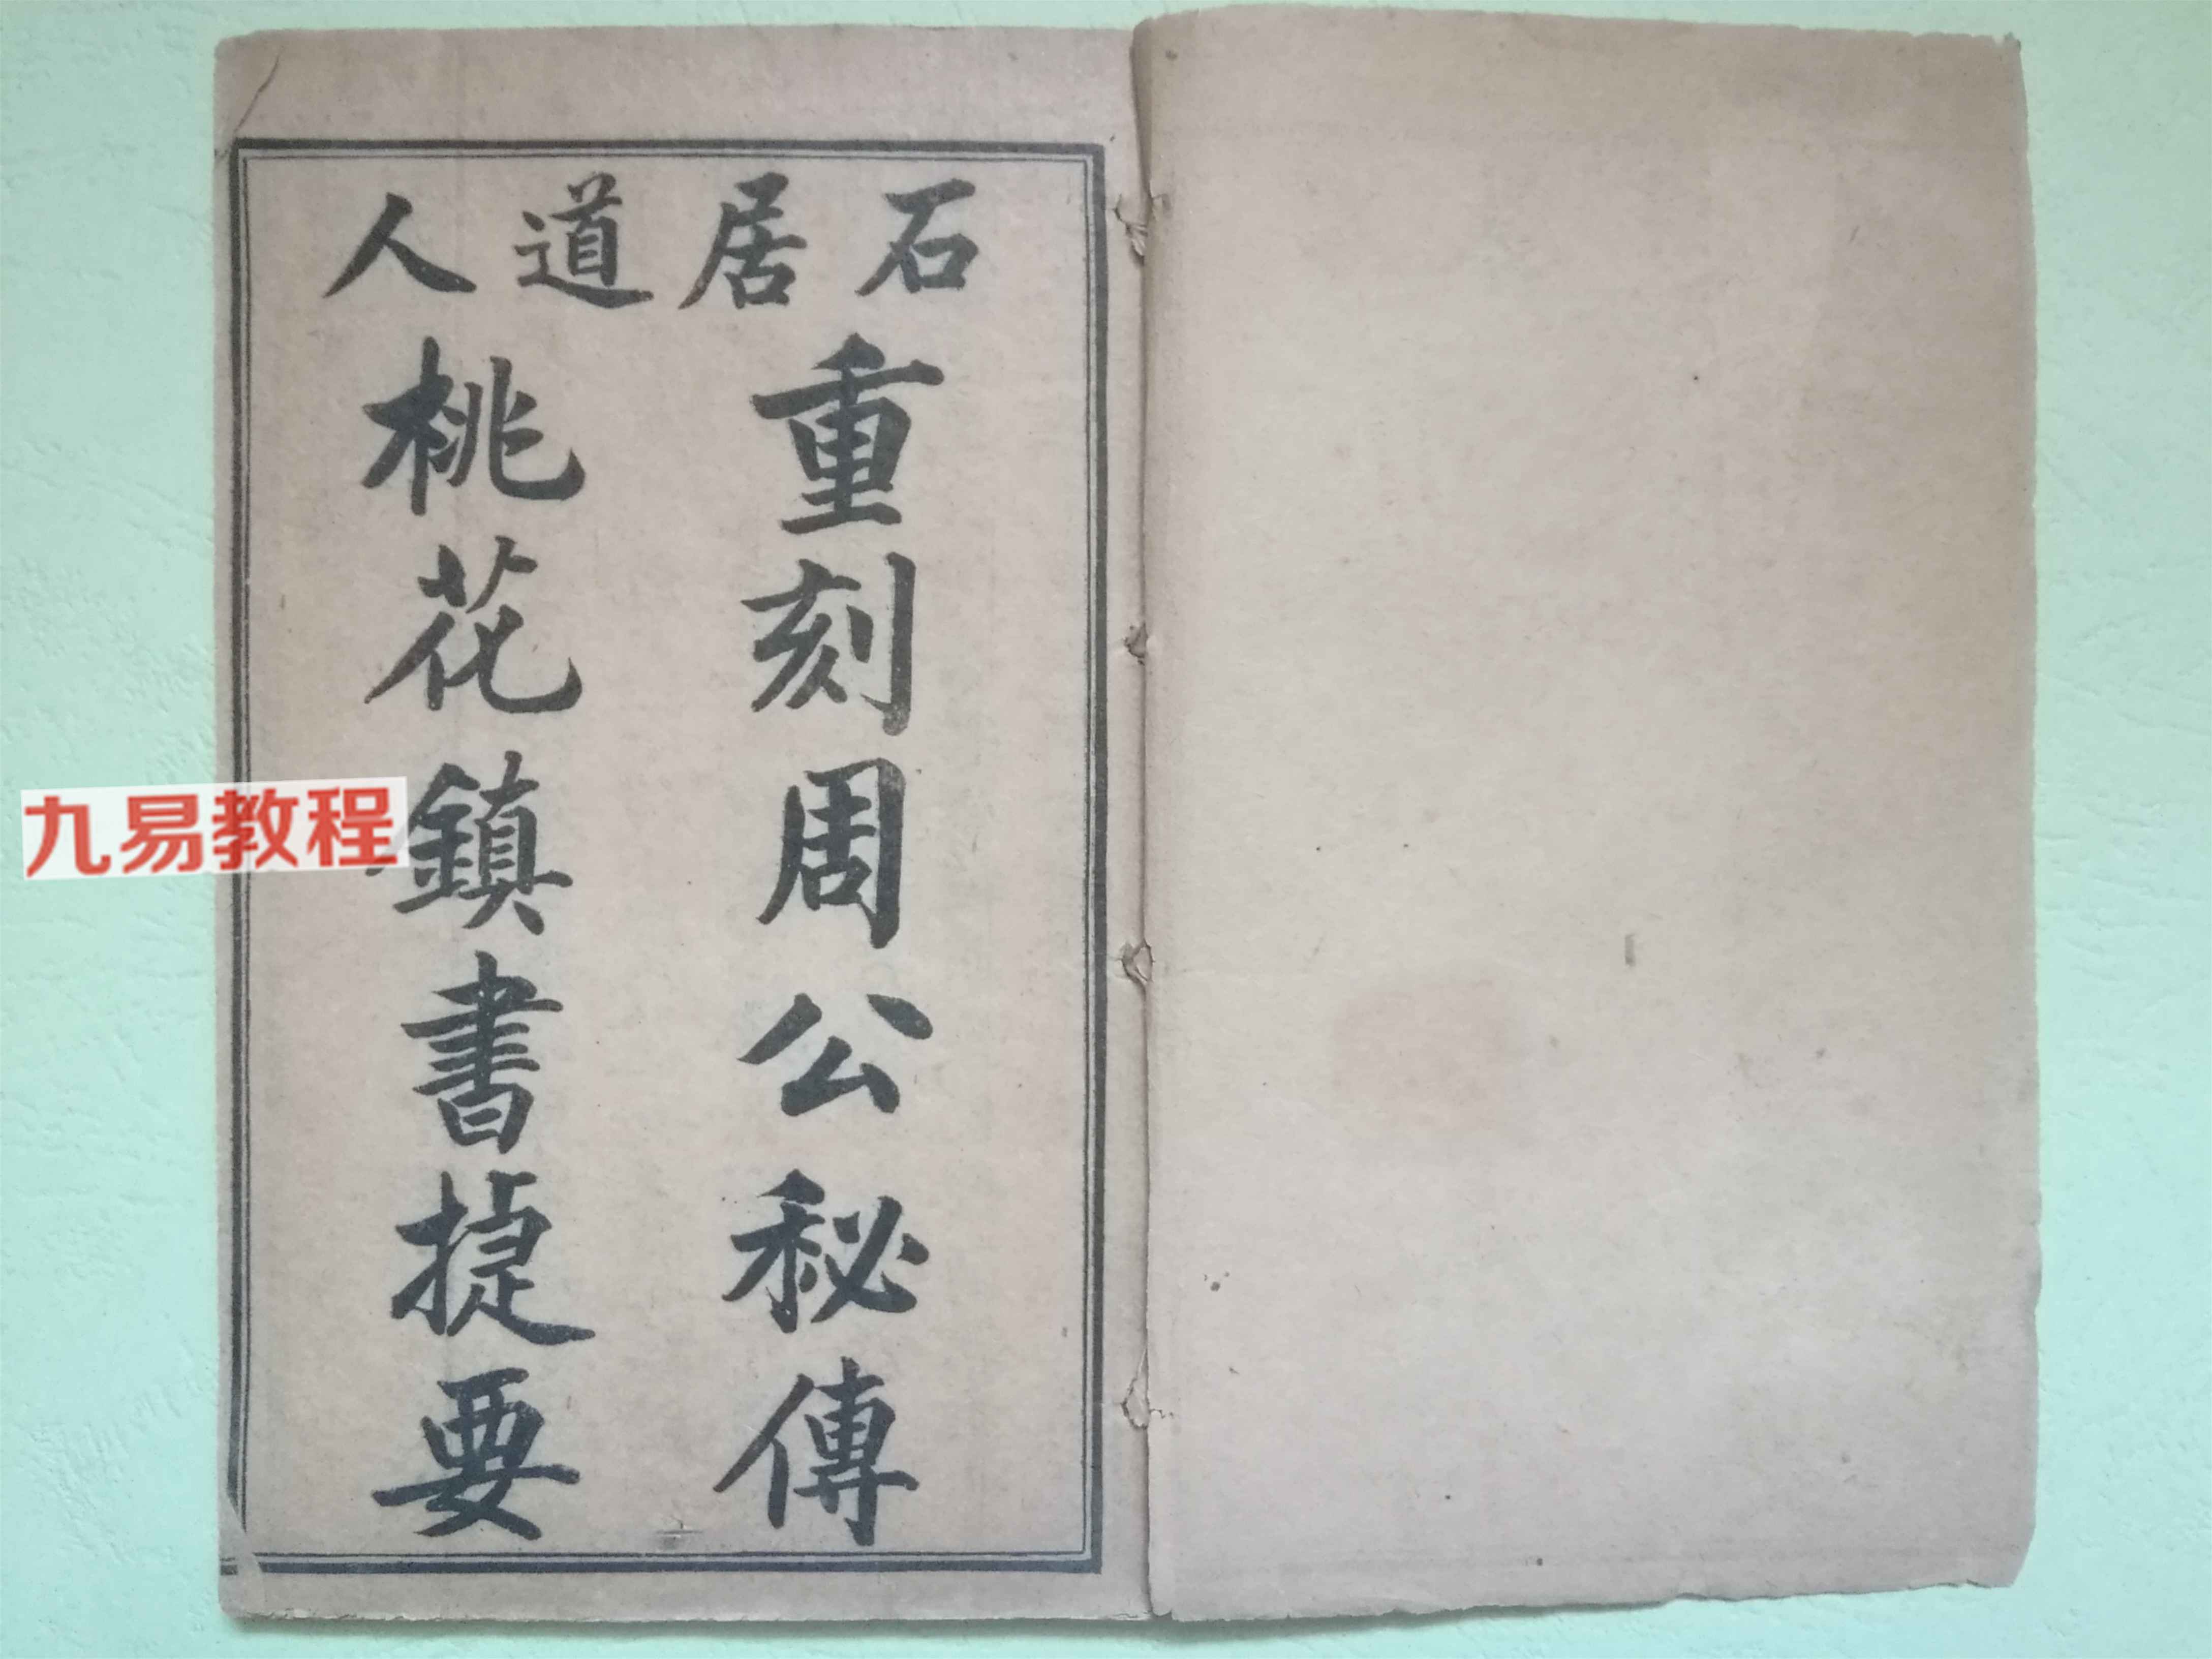 石居道人
重刻周公秘傳
桃花鎮書捷要
九易教程